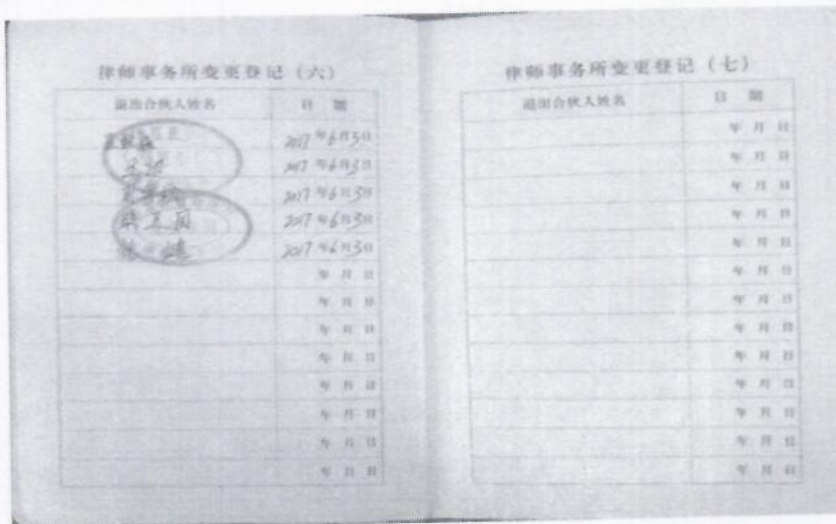 律师事务所变更登记（六）
退出合伙人姓名 日 期
2017年6月5日
2017年6月5日
2017年6月5日
2017年6月5日
2017年6月5日
年 月 日
年 月 日
年 月 日
年 月 日
年 月 日
年 月 日
年 月 日
年 月 日
律师事务所变更登记（七）
退出合伙人姓名 日 期
年 月 日
年 月 日
年 月 日
年 月 日
年 月 日
年 月 日
年 月 日
年 月 日
年 月 日
年 月 日
年 月 日
年 月 日
年 月 日